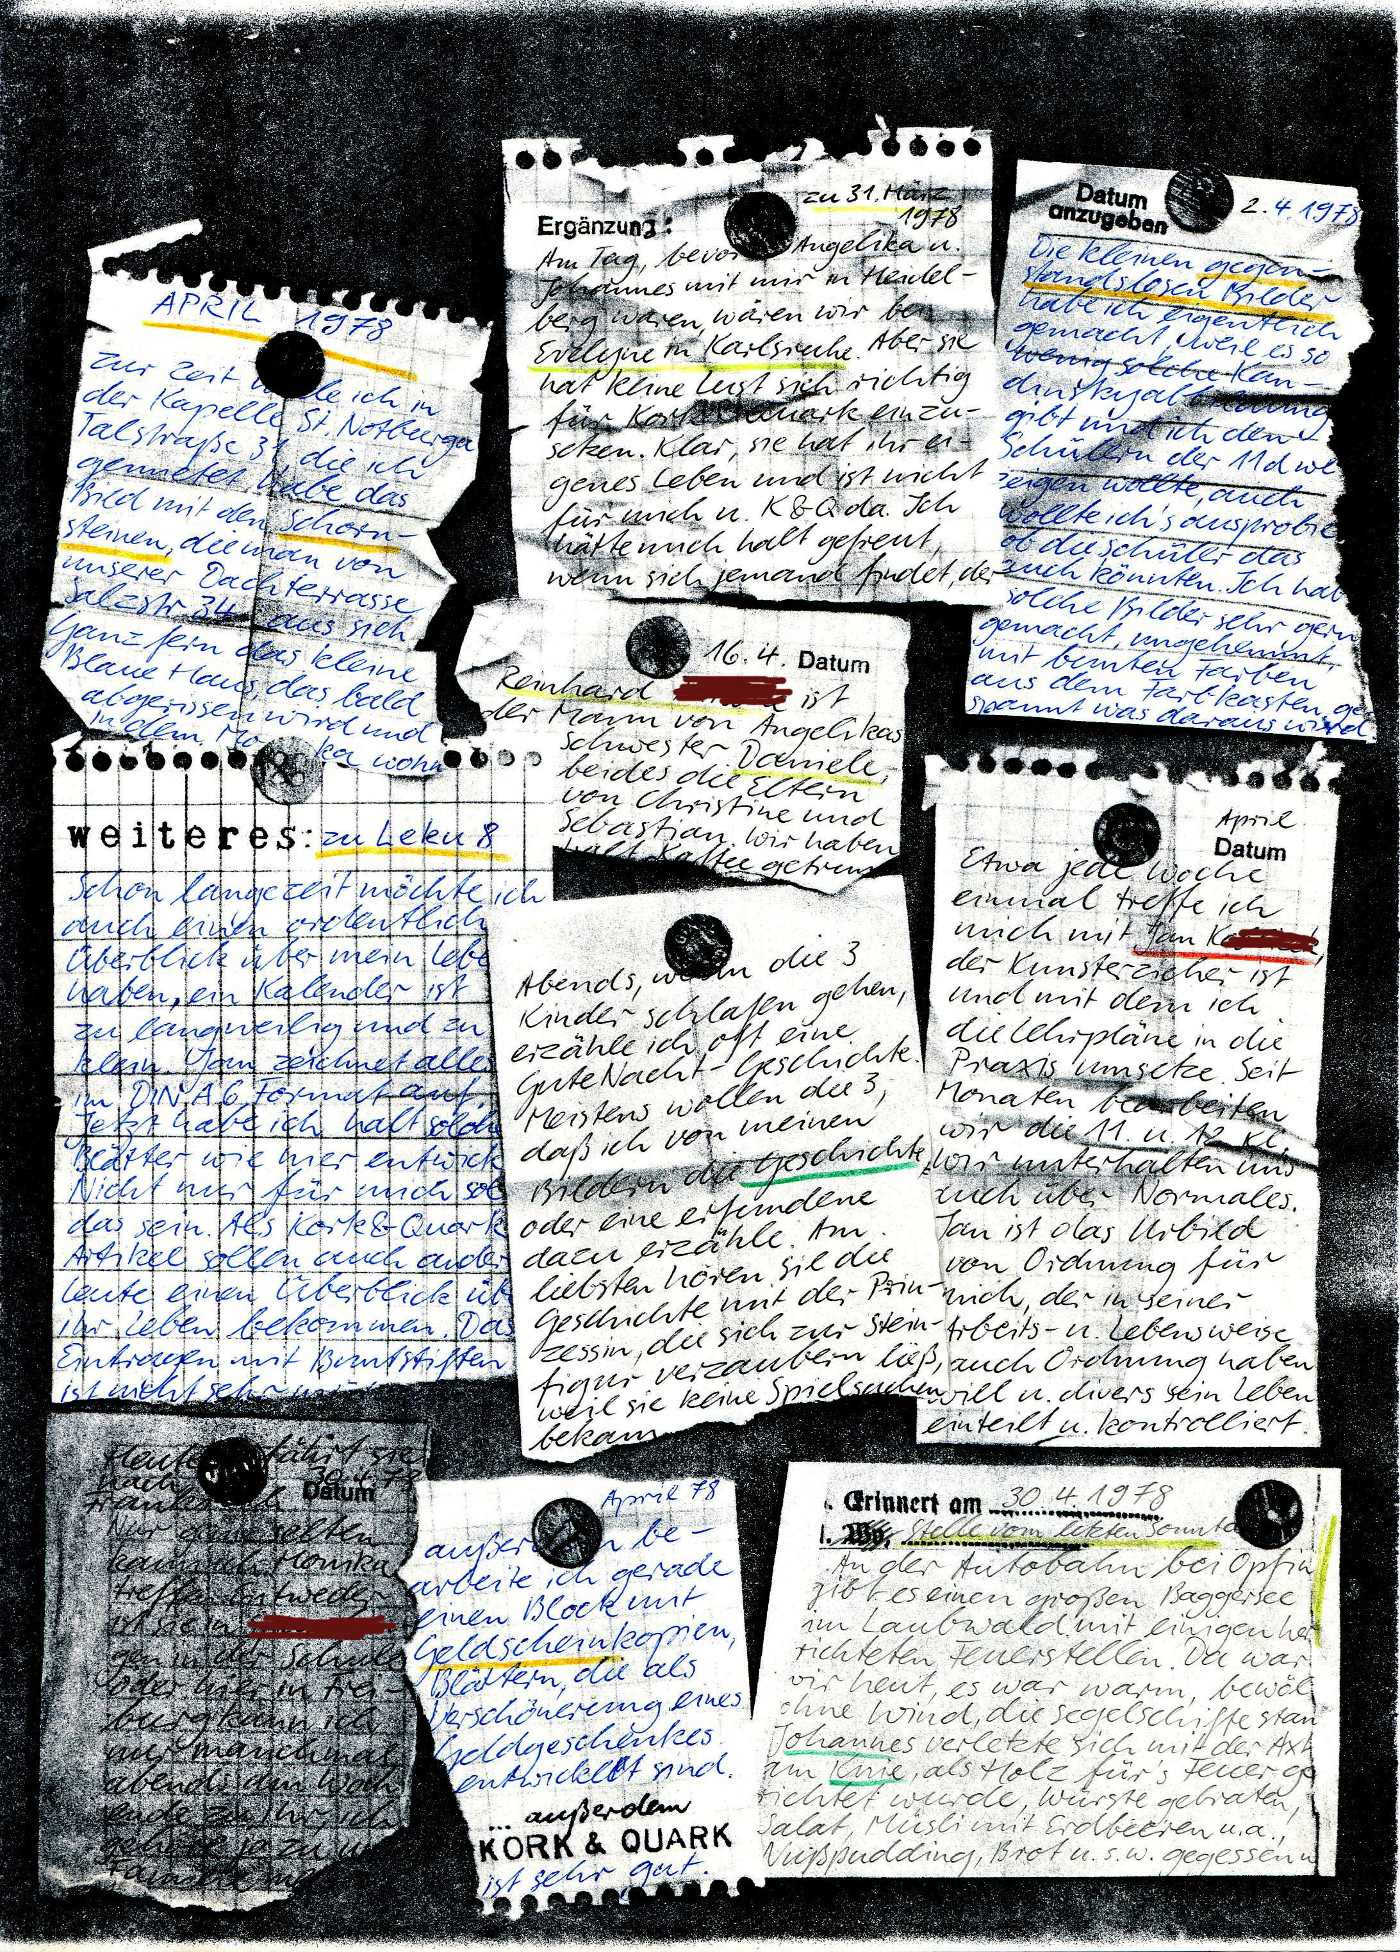 APRIL 1978
zur Zeit male ich in
der Kapelle St. Notburga
Talstraße 31, die ich
gemietet habe das
Bild mit den Schorn-
steinen, die man von
unserer Dachterrasse
Salzstr. 34 aus sieh
Ganz fern das kleine
Blaue Haus, das bald
abgerissen wird und
in dem Mo ka wohn
Ergänzung: zu 31. März
1978
Am Tag, bevor Angelika u.
Johannes mit mir in Heidel-
berg waren, waren wir bei
Evelyne in Karlsruhe. Aber sie
hat keine Lust sich richtig
für Kork & Quark einzu-
setzen. Klar, sie hat ihr ei-
genes Leben und ist nicht
für mich u. K & Q da. Ich
hätte mich halt gefreut,
wenn sich jemand findet, der
Datum
anzugeben 2.4.1978
Die kleinen gegen-
standslosen Bilder
habe ich eigentlich
gemacht, weil es so
wenig solche Kan-
dinskyal
gibt und ich den
Schülern der 11d we
zeigen wollte, auch
wollte ich's ausprobie
ob die Schüler das
auch könnten. Ich hab
solche Bilder sehr gern
gemacht, ungehemmt,
mit bunten Farben
aus dem Farbkasten, ge
spannt was daraus wird.
16.4. Datum
Reinhard ist
der Mann von Angelikas
Schwester Daniele,
beides die Eltern
von Christine und
Sebastian. Wir haben
halt Kaffee getrunk
weiteres: zu Leku 8
Schon lange Zeit möchte ich
auch einen ordentlich
Überblick über mein Lebe
haben, ein Kalender ist
zu langweilig und zu
klein. Jan zeichnet alles
im DIN A 6 Format auf.
Jetzt habe ich halt solche
Blätter wie hier entwick
Nicht nur für mich sol
das sein. Als Kork & Quark
Artikel sollen auch ander
Leute einen Überblick üb
ihr Leben bekommen. Das
Eintragen mit Buntstiften
ist nicht sehr
Abends, wenn die 3
Kinder schlafen gehen,
erzähle ich oft eine
Gute Nacht-Geschichte.
Meistens wollen die 3,
daß ich von meinen
Bildern die Geschichte
oder eine erfundene
dazu erzähle. Am
liebsten hören sie die
Geschichte mit der Prin-
zessin, die sich zur Stein-
figur verzaubern ließ,
weil sie keine Spielsachen
bekam
April
Datum
Etwa jede Woche
einmal treffe ich
mich mit Jan K
der Kunsterzieher ist
und mit dem ich
die Lehrpläne in die
Praxis umsetze. Seit
Monaten bearbeiten
wir die 11. u. 12. Kl.
Wir unterhalten uns
auch über Normales.
Jan ist das Urbild
von Ordnung für
mich, der in seiner
Arbeits- u. Lebensweise
auch Ordnung haben
will u. divers sein Leben
einteilt u. kontrolliert.
Heute fährt sie
nach 30.4.78
Datum
Frankreich
Nur ganz selten
kann ich Monika
treffen. Entweder
ist sie in
gen in der Schule
oder hier in Frei-
burg kann ich
nur manchmal
abends dem Woch
ende zu ihr, ich
gehöre ja zu
Familie
April 78
außerdem be-
arbeite ich gerade
einen Block mit
Geldscheinkopien,
Blättern, die als
Verschönerung eines
Geldgeschenkes
entwickelt sind.
... außerdem
KORK & QUARK
ist sehr gut.
Erinnert am 30.4.1978
Stelle vom letzten Sonnta
An der Autobahn bei Opfin
gibt es einen großen Baggersee
im Laubwald mit einigen her
richteten Feuerstellen. Da war
wir heut, es war warm, bewöl
ohne Wind, die Segelschiffe stan
Johannes verletzte sich mit der Axt
am Knie, als Holz für's Feuer ge
richtet wurde, Würste gebraten,
Salat, Müsli mit Erdbeeren u.a.,
Nußpudding, Brot u.s.w. gegessen u